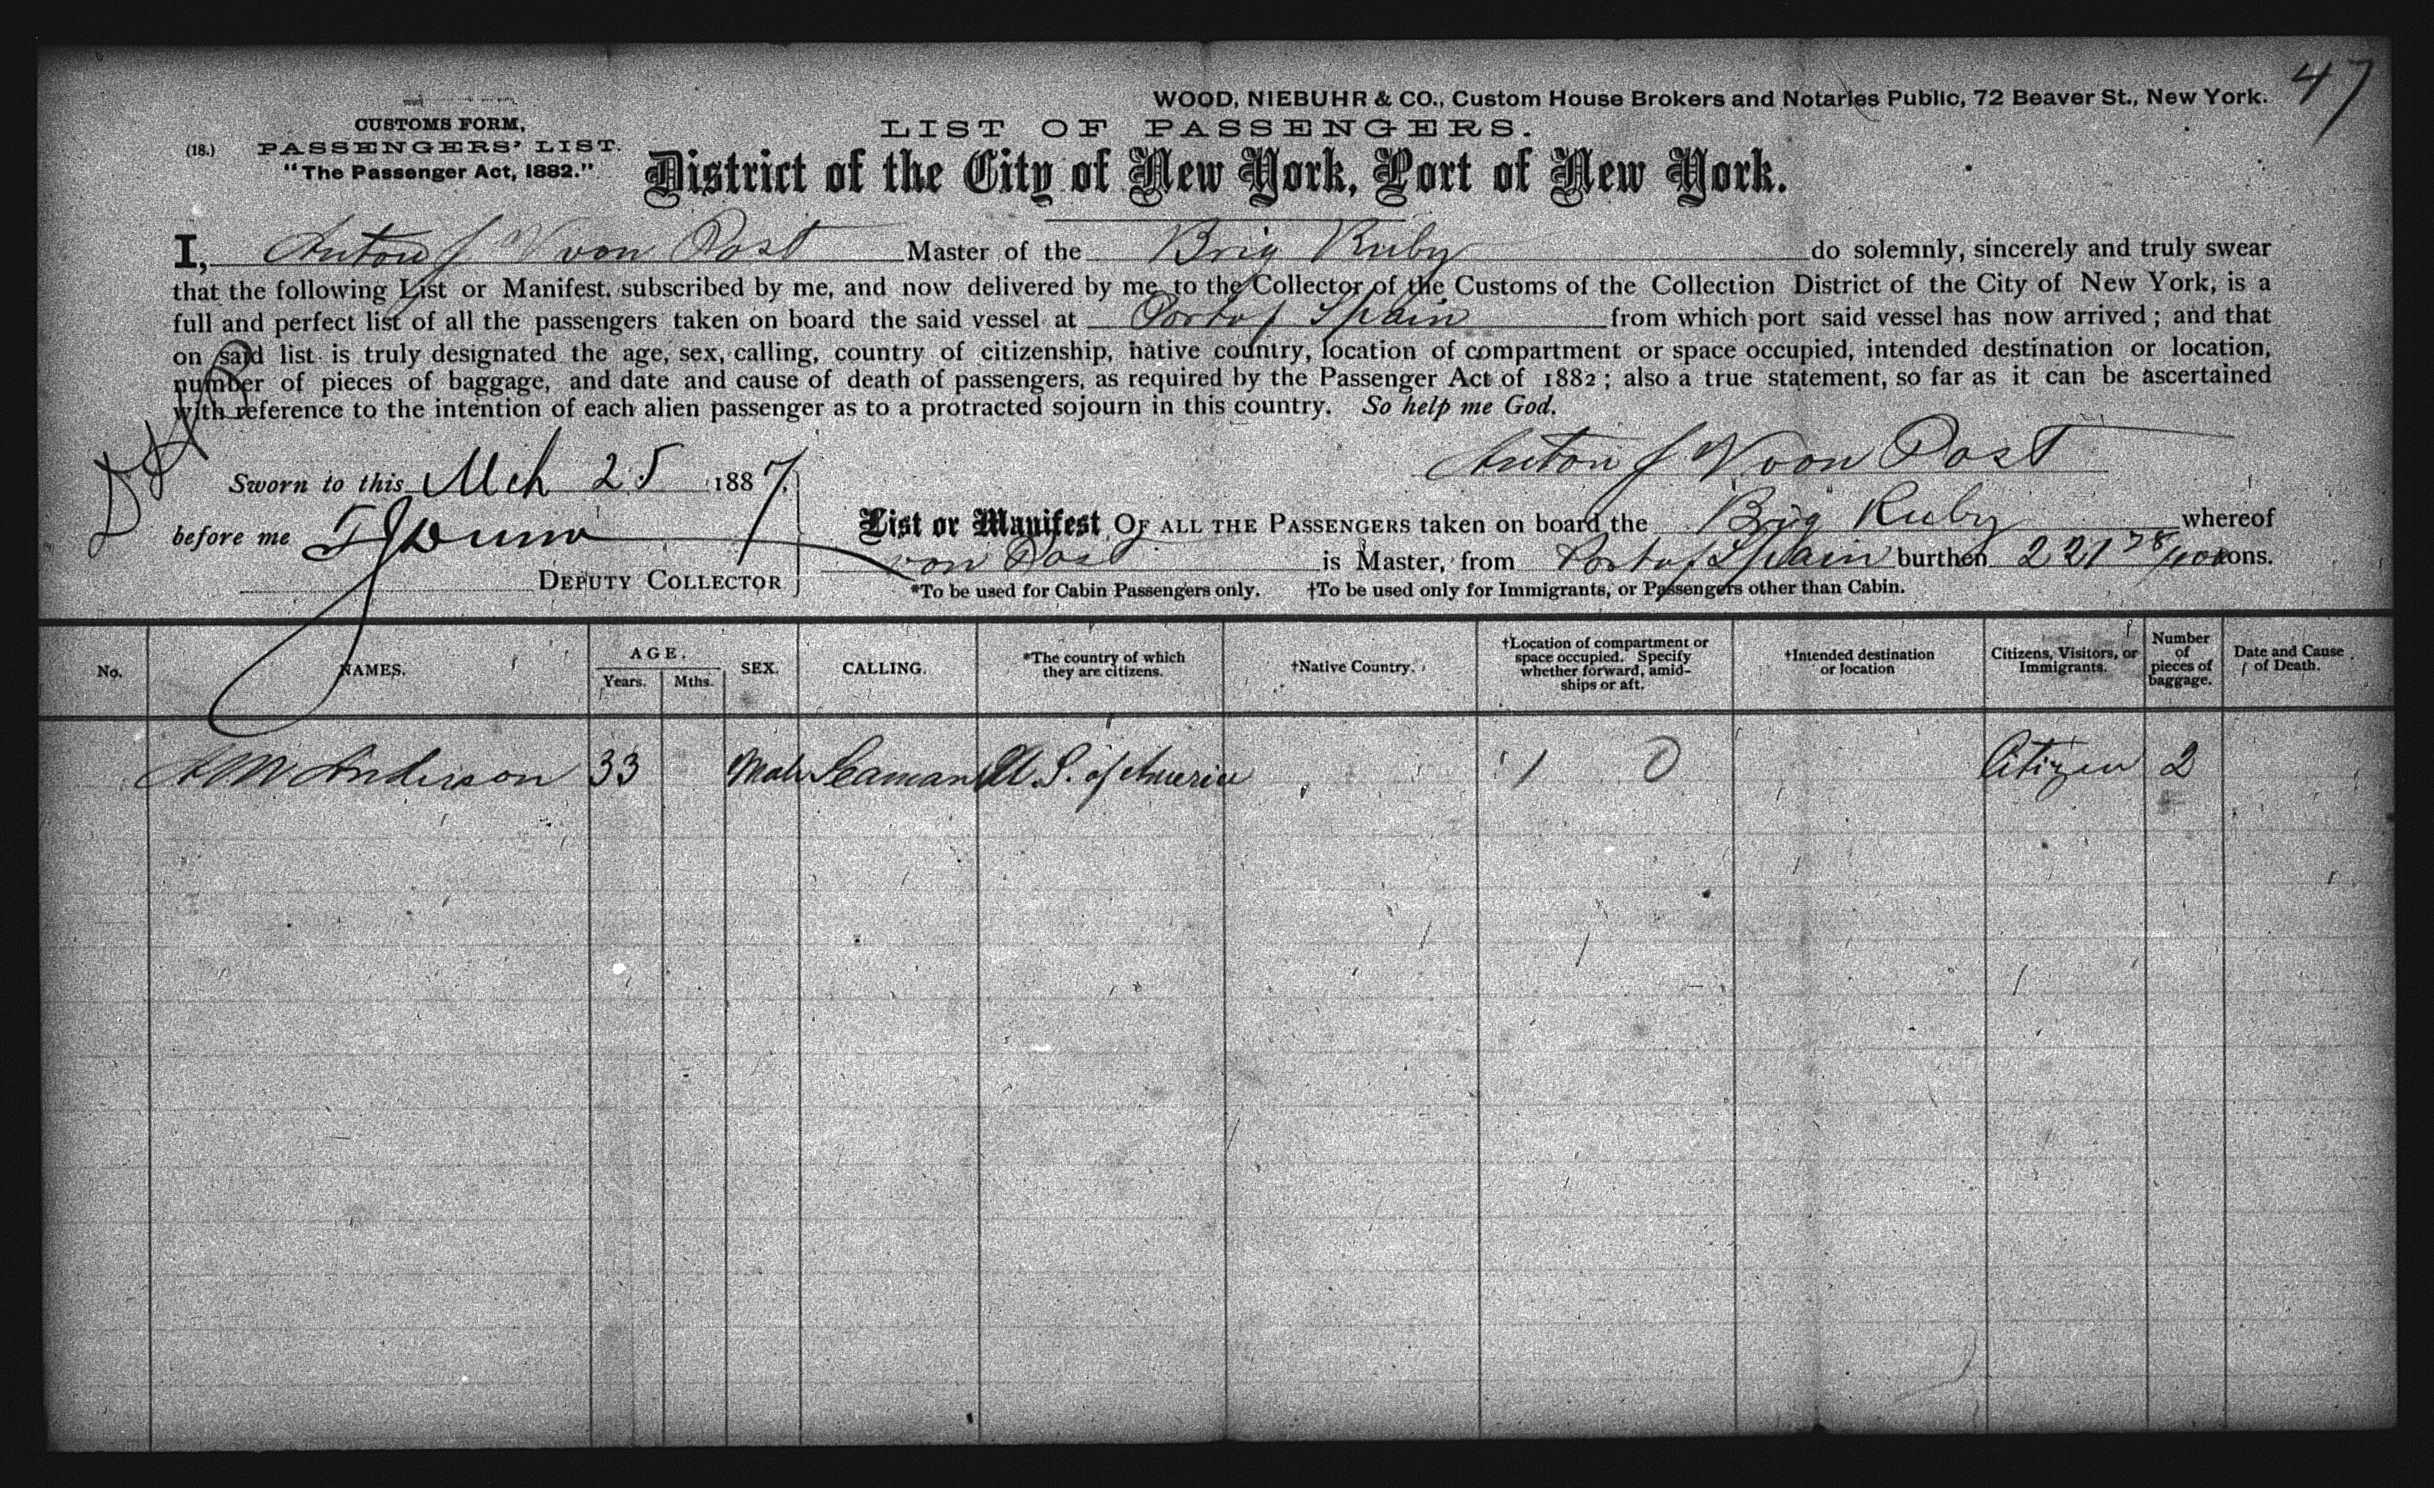 47
WOOD, NIEBUHR & CO., Custom House Brokers and Notaries Public, 72 Beaver St., New York.
CUSTOMS FORM,
LIST OF PASSENGERS.
(18.) PASSENGERS' LIST.
"The Passenger Act, 1882."
District of the City of New York, Port of New York.
I, Anton J W von Post Master of the Brig Ruby do solemnly, sincerely and truly swear
that the following List or Manifest, subscribed by me, and now delivered by me to the Collector of the Customs of the Collection District of the City of New York, is a
full and perfect list of all the passengers taken on board the said vessel at Port of Spain from which port said vessel has now arrived; and that
on said list is truly designated the age, sex, calling, country of citizenship, native country, location of compartment or space occupied, intended destination or location,
number of pieces of baggage, and date and cause of death of passengers, as required by the Passenger Act of 1882; also a true statement, so far as it can be ascertained
with reference to the intention of each alien passenger as to a protracted sojourn in this country. So help me God.
Anton J W von Post
Sworn to this Mch 25 1887.
before me
DEPUTY COLLECTOR
List or Manifest OF ALL THE PASSENGERS taken on board the Brig Ruby whereof
von Post is Master, from Port of Spain burthen 221 78/100 tons.
*To be used for Cabin Passengers only. †To be used only for Immigrants, or Passengers other than Cabin.
No. NAMES. AGE. Years. Mths. SEX. CALLING. *The country of which they are citizens. †Native Country. †Location of compartment or space occupied. Specify whether forward, amidships or aft. †Intended destination or location Citizens, Visitors, or Immigrants. Number of pieces of baggage. Date and Cause of Death.
A M Anderson 33 Male Seaman U. S. of America 1 0 Citizen 2